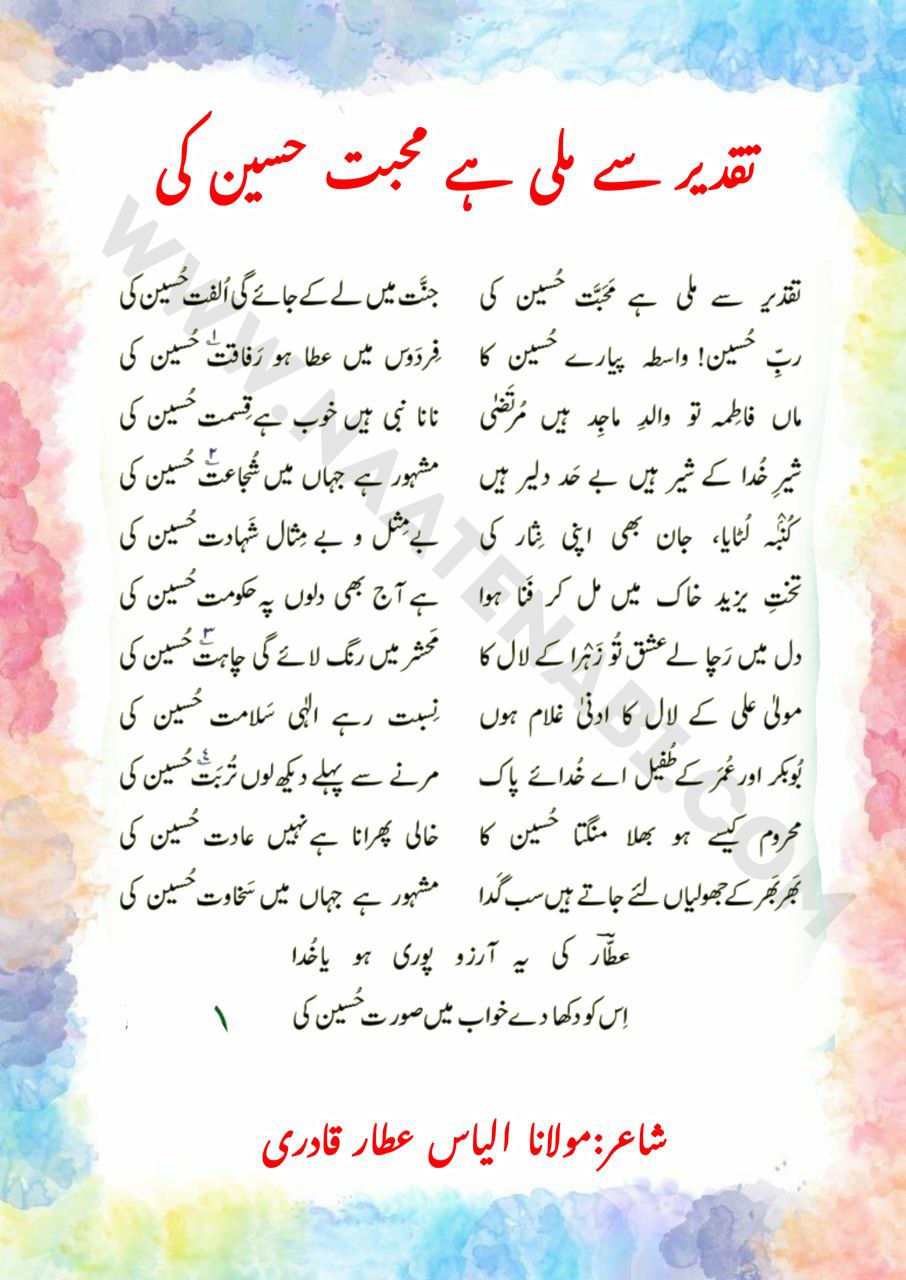 تقدیر سے ملی ہے محبت حسین کی
تقدیر سے ملی ہے مَحَبَّت حُسین کی جنَّت میں لے کے جائے گی اُلفت حُسین کی
ربِّ حُسین! واسطہ پیارے حُسین کا فِردَوس میں عطا ہو رَفاقت۱ حُسین کی
ماں فاطِمہ تو والدِ ماجِد ہیں مُرتَضٰی نانا نبی ہیں خوب ہے قِسمت حُسین کی
شیرِ خُدا کے شیر ہیں بے حَد دلیر ہیں مشہور ہے جہاں میں شُجاعت۲ حُسین کی
کُنْبَہ لُٹایا، جان بھی اپنی نِثار کی بے مِثل و بے مِثال شَہادت حُسین کی
تختِ یزید خاک میں مل کر فَنا ہوا ہے آج بھی دلوں پہ حکومت حُسین کی
دل میں رَچا لے عشق تُو زَہْرا کے لال کا مَحشر میں رنگ لائے گی چاہت۳ حُسین کی
مولیٰ علی کے لال کا ادنیٰ غلام ہوں نِسبت رہے الٰہی سَلامت حُسین کی
بُوبکر اور عُمَر کے طُفیل اے خُدائے پاک مرنے سے پہلے دیکھ لوں تُربَت۴ حُسین کی
محروم کیسے ہو بھلا منگتا حُسین کا خالی پھرانا ہے نہیں عادت حُسین کی
بَھر بَھر کے جھولیاں لئے جاتے ہیں سب گَدا مشہور ہے جہاں میں سَخاوت حُسین کی
عطّار کی یہ آرزو پوری ہو یا خُدا
اِس کو دکھا دے خواب میں صورت حُسین کی
۱
شاعر:مولانا الیاس عطار قادری
WWW.NAATENABI.COM